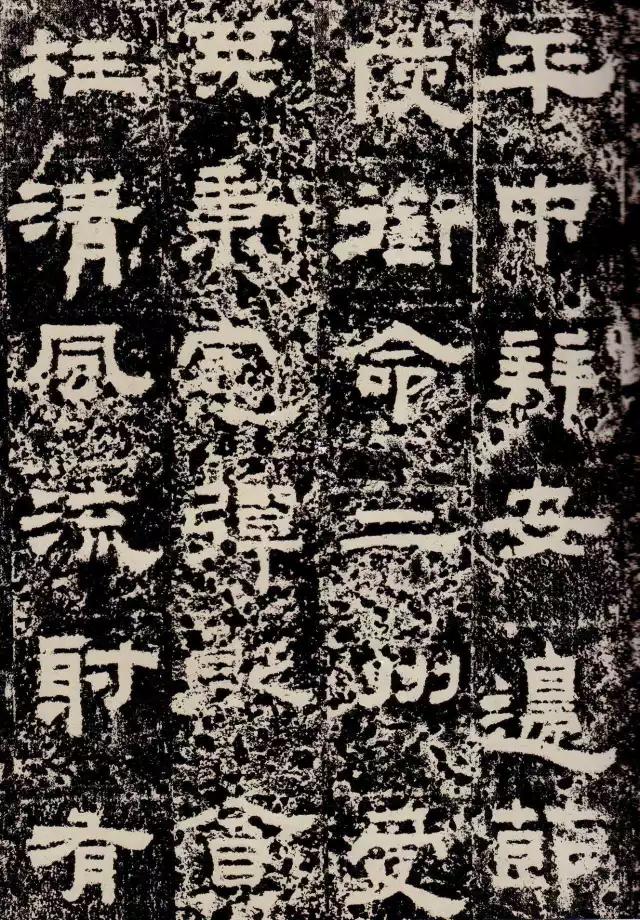 平中拜安邊節
使銜命二州受
莢秉憲彈貪
枉清風流射有